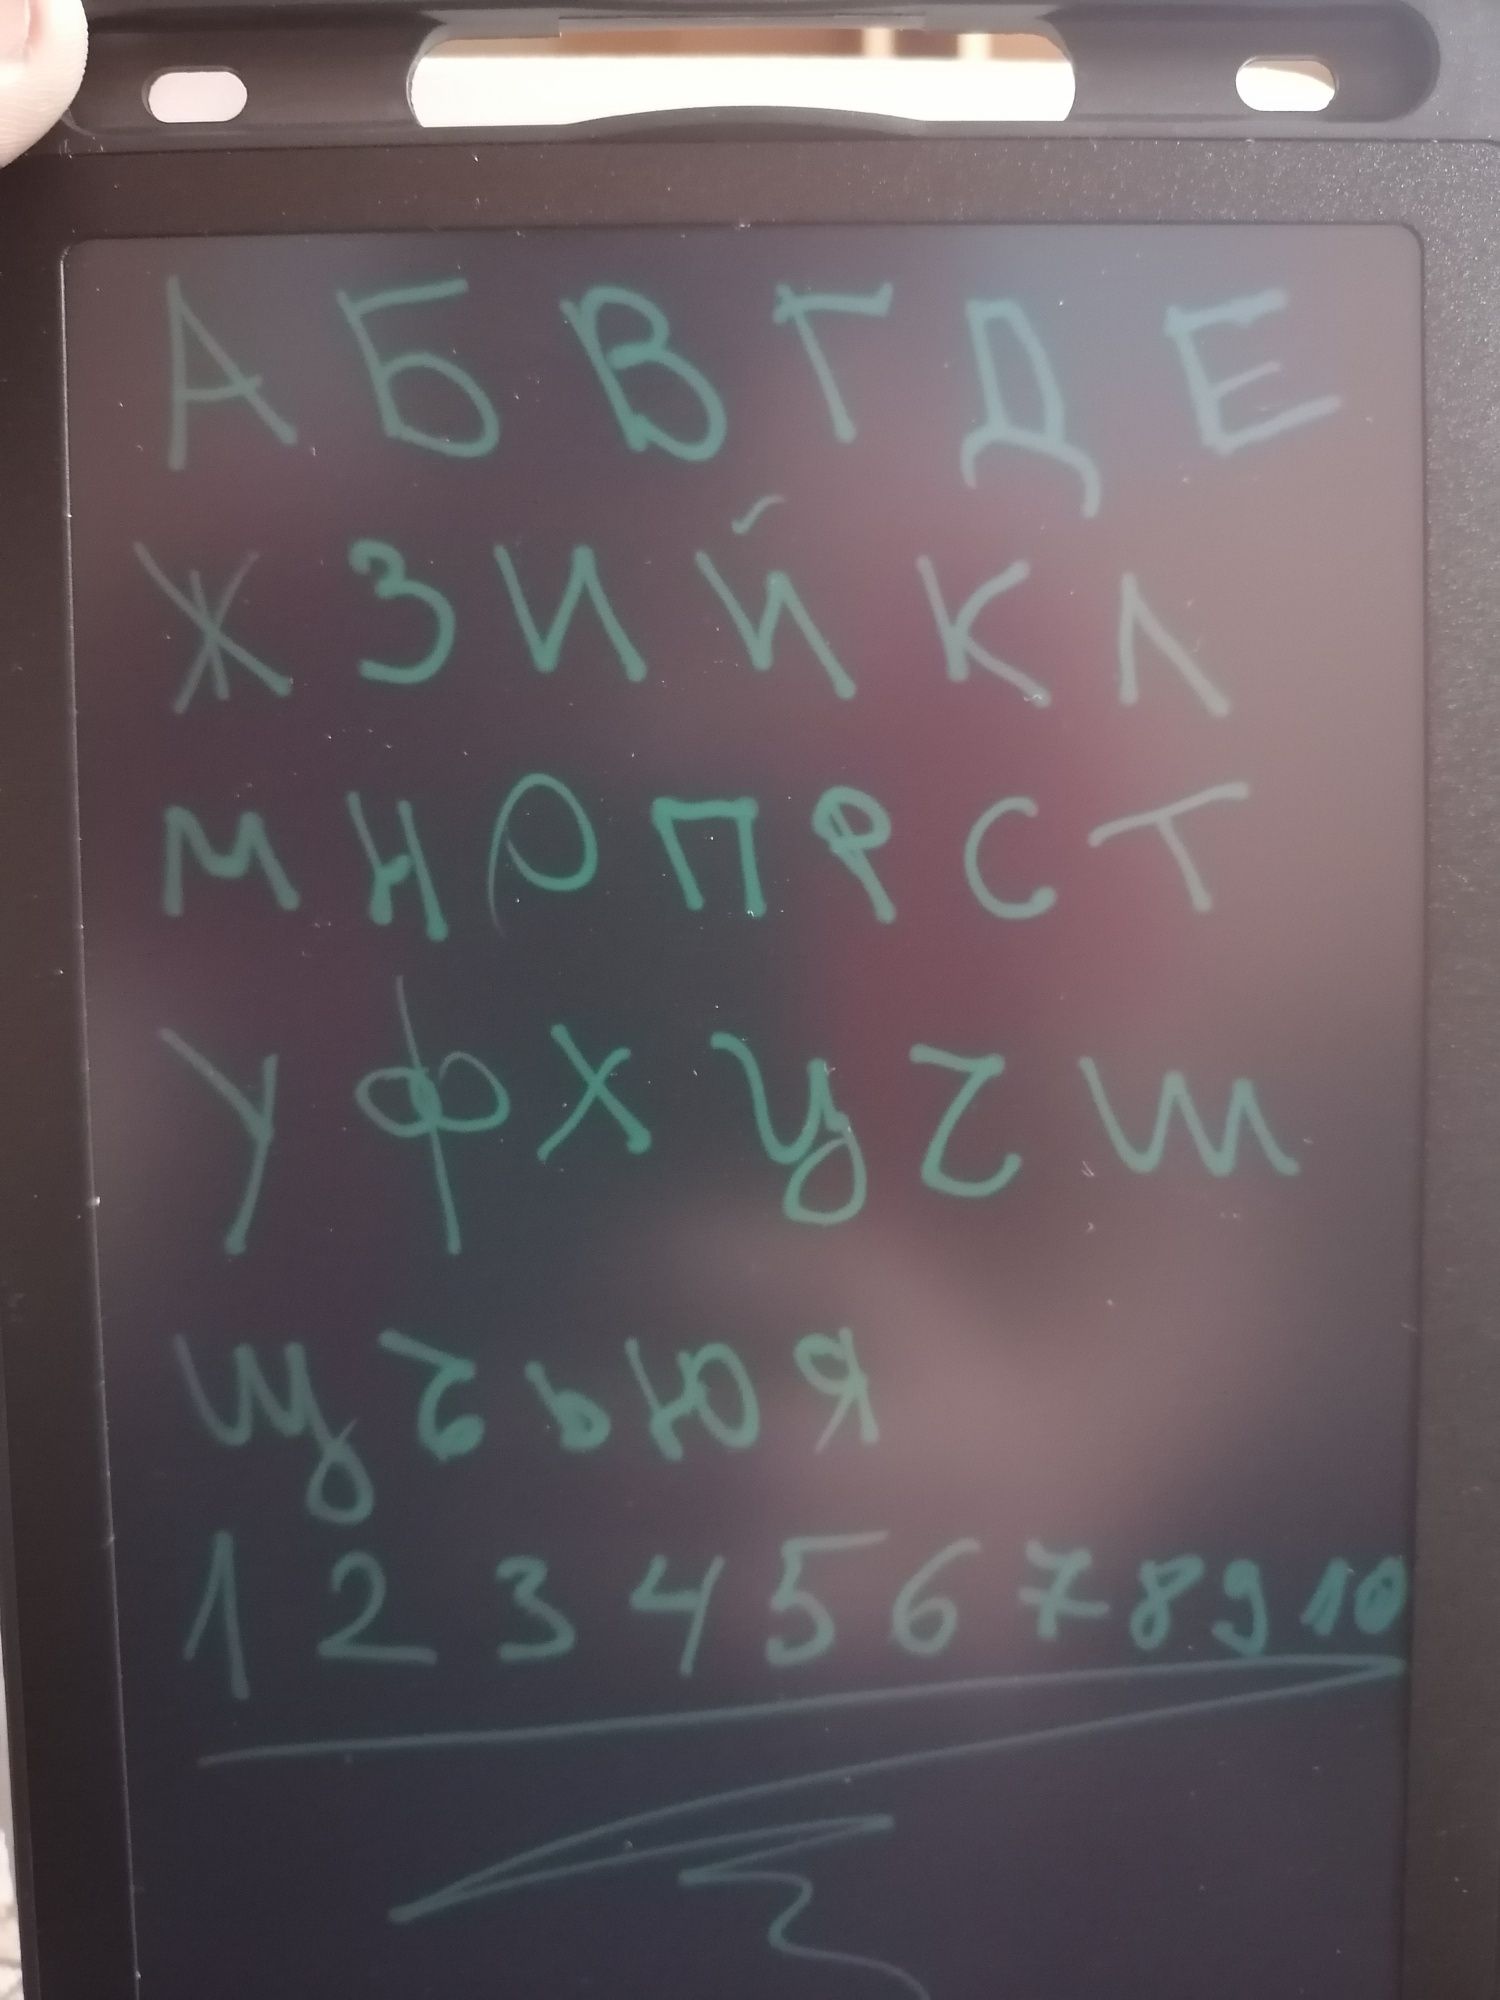 А Б В Г Д Е
Ж З И Й К Л
М Н О П Р С Т
У Ф Х Ц Ч Ш
Щ Ъ Ь Ю Я
1 2 3 4 5 6 7 8 9 10